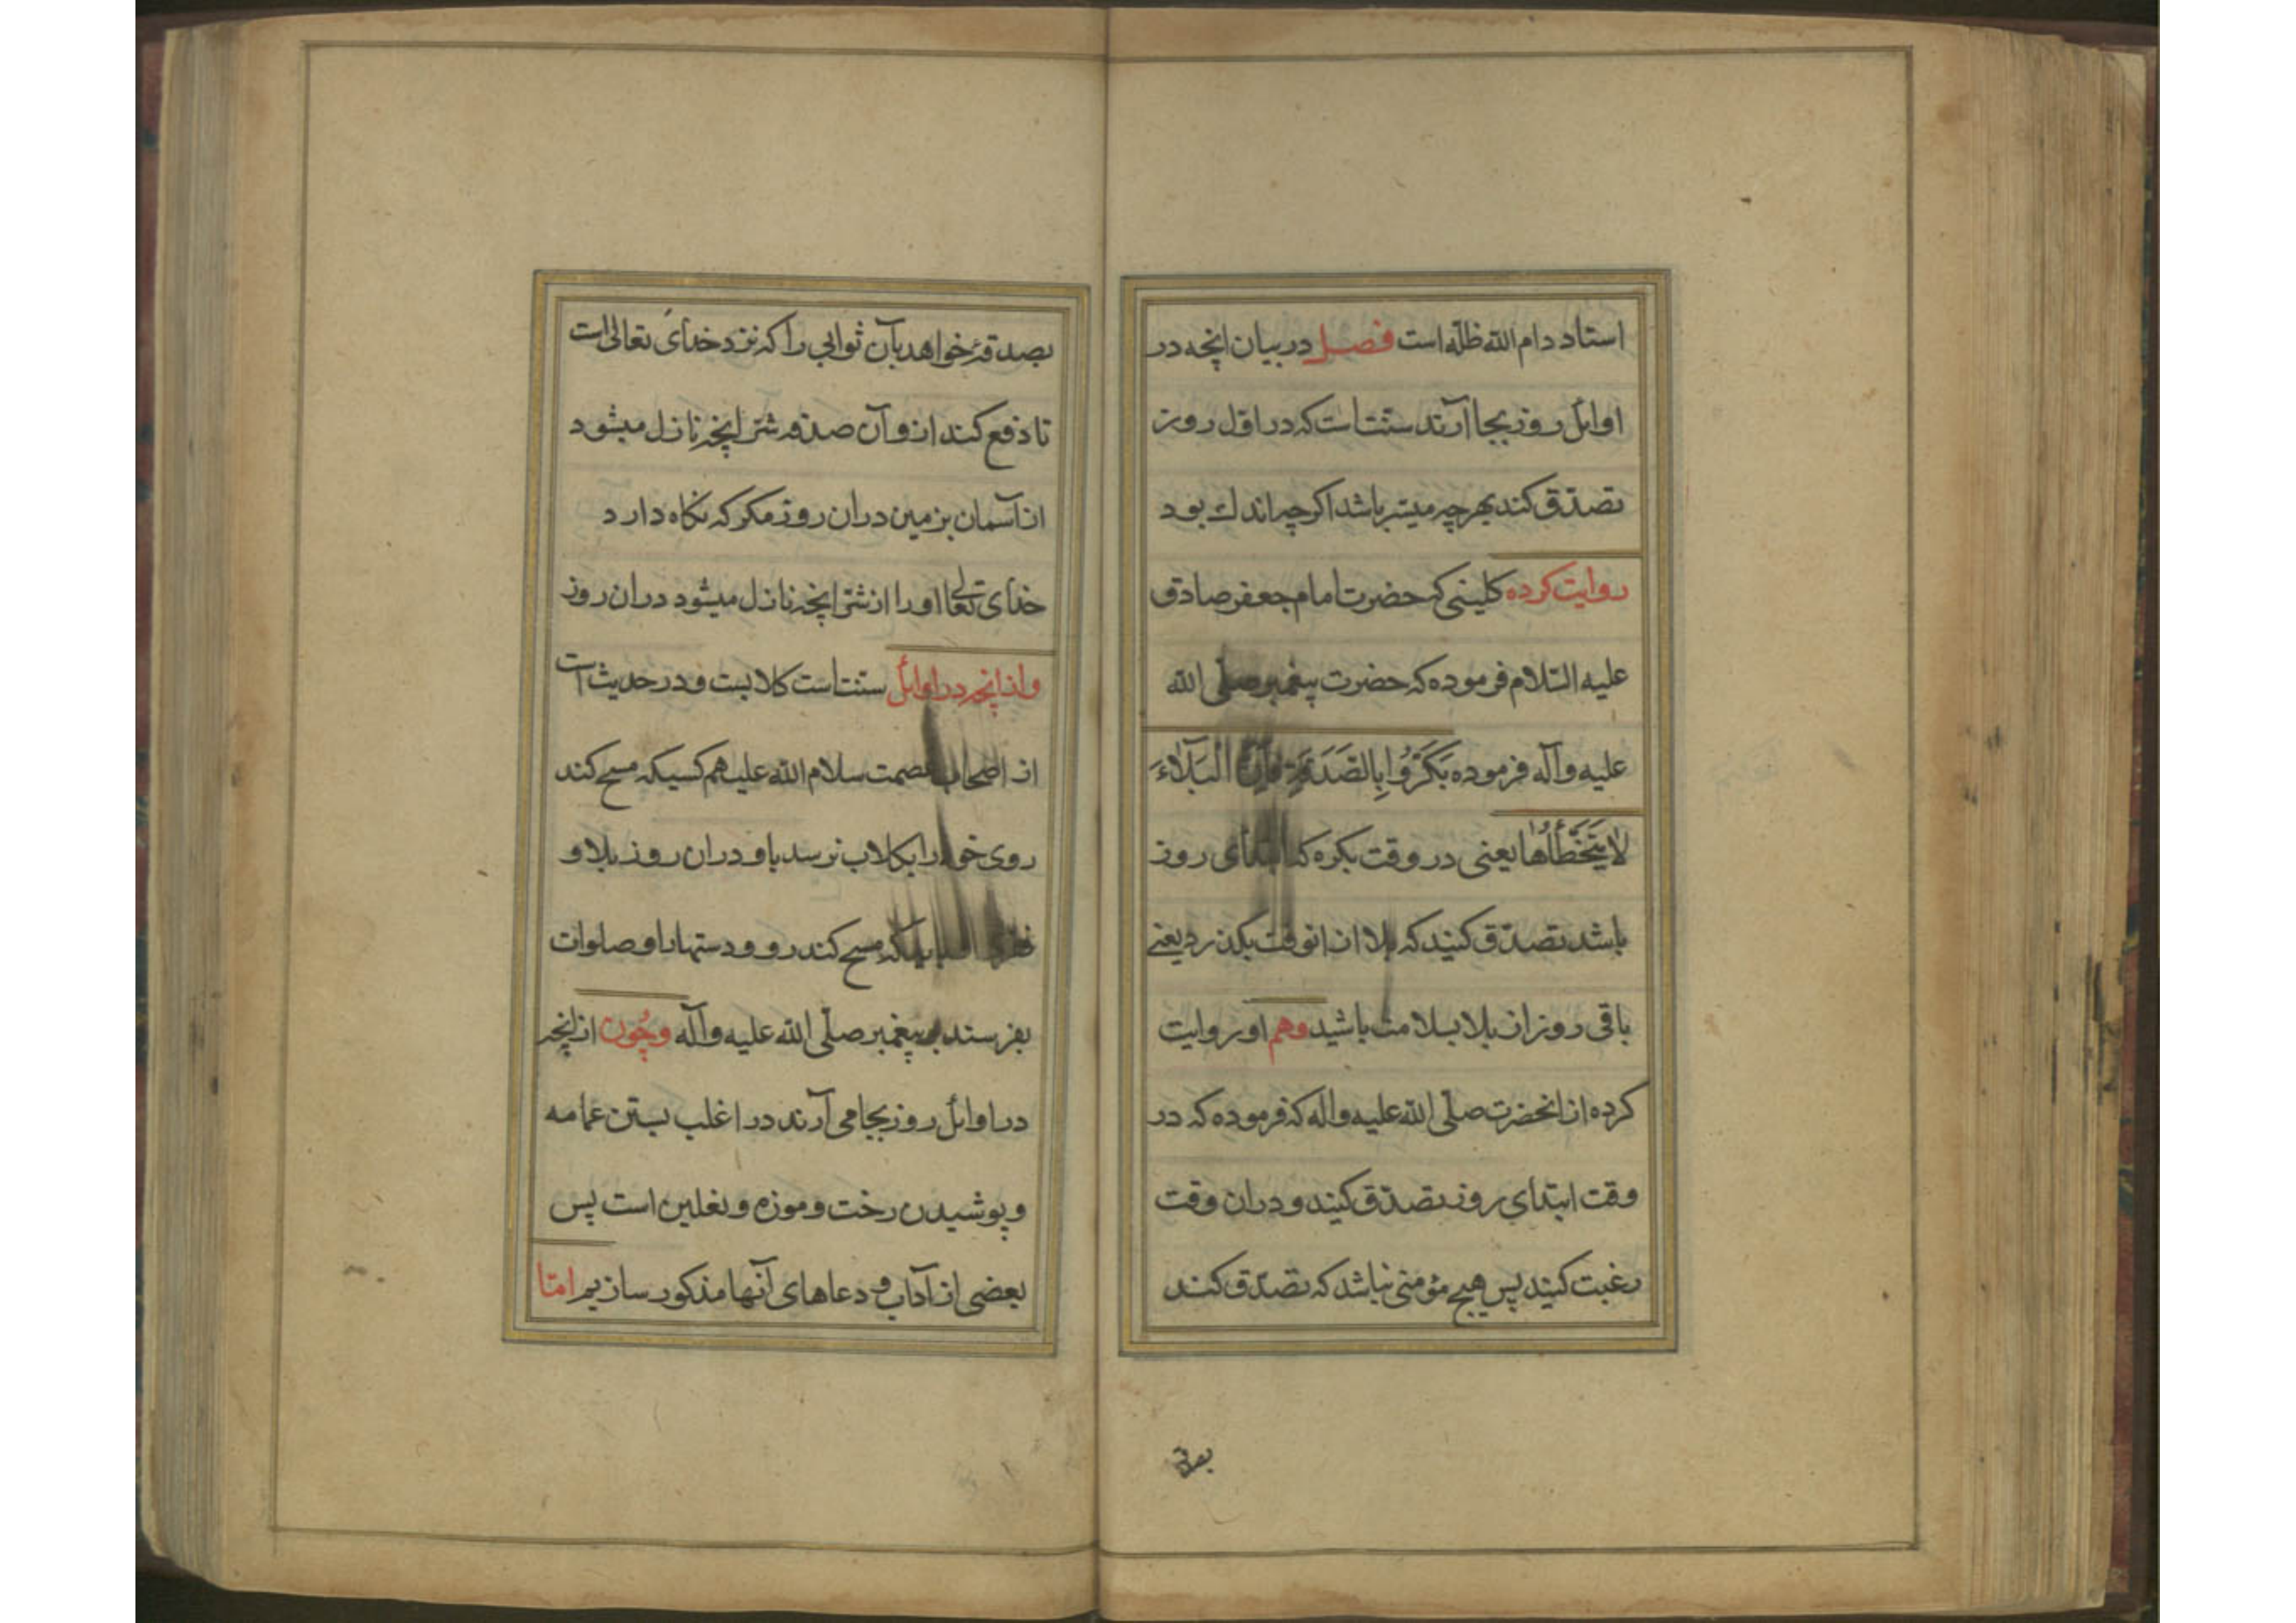 استاد دام الله ظلّه است فصل در بیان انچه در
اوایل روز بجا آرند سنّت است که در اوّل روز
تصدّق کند بهرچه میسّر باشد اکرچه اندك بود
روایت کرده کلینی که حضرت امام جعفر صادق
علیه السّلام فرموده که حضرت پیغمبر صلّی الله
علیه وآله فرموده بَکِّرُوا بِالصَّدَقَةِ فَاِنَّ الْبَلَاءَ
لَا یَتَخَطَّاُهَا یعنی در وقت بکره که ابتدای روز
باشد تصدّق کنید که بلا از انوقت بکذرد یعنے
باقی روز از بلا بسلامت باشید وهم او روایت
کرده از انحضرت صلّی الله علیه واله که فرموده که در
وقت ابتدای روز تصدّق کنید و دران وقت
رغبت کنید پس هیچ مؤمنی نباشد که تصدّق کند
بصدقهٔ
بصدقهٔ خواهد بآن ثوابی را که نزد خدای تعالی است
تا دفع کند از و آن صدقه شرّ انچه نازل میشود
از آسمان بزمین دران روز مکر که نکاه دارد
خدای تعالی اورا از شرّ انچه نازل میشود دران روز
واز انچه در اوایل سنّت است کلابست ودر حدیث است
از اصحاب عصمت سلام الله علیهم کسیکه مسح کند
روی خود را بکلاب نرسد باو دران روز بلا و
مسح کند رو ودستها را و صلوات
بفرستد بر پیغمبر صلّی الله علیه وآله وچُون از انچه
در اوایل روز بجا می آرند در اغلب بستن عمامه
وپوشیدن رخت وموزه ونعلین است پس
بعضی از آداب و دعاهای آنها مذکور سازیم امّا